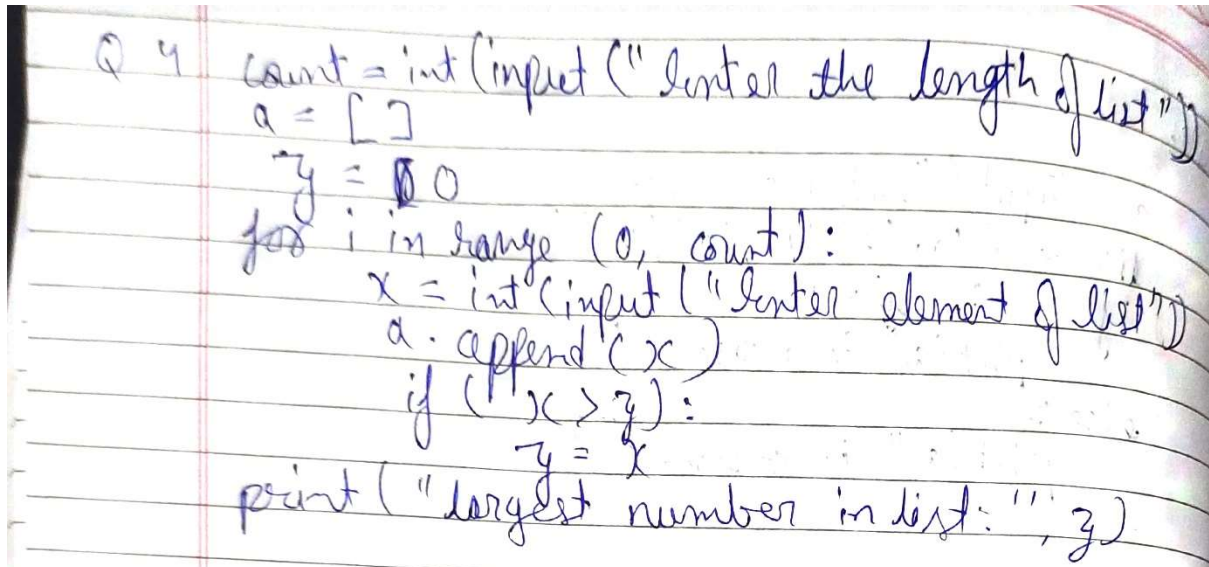 Q 4 count = int (input ("Enter the length of list"))
a = [ ]
y = 0
for i in range (0, count) :
x = int (input ("Enter element of list"))
a . append (x)
if (x > y) :
y = x
print ("largest number in list: ", y)